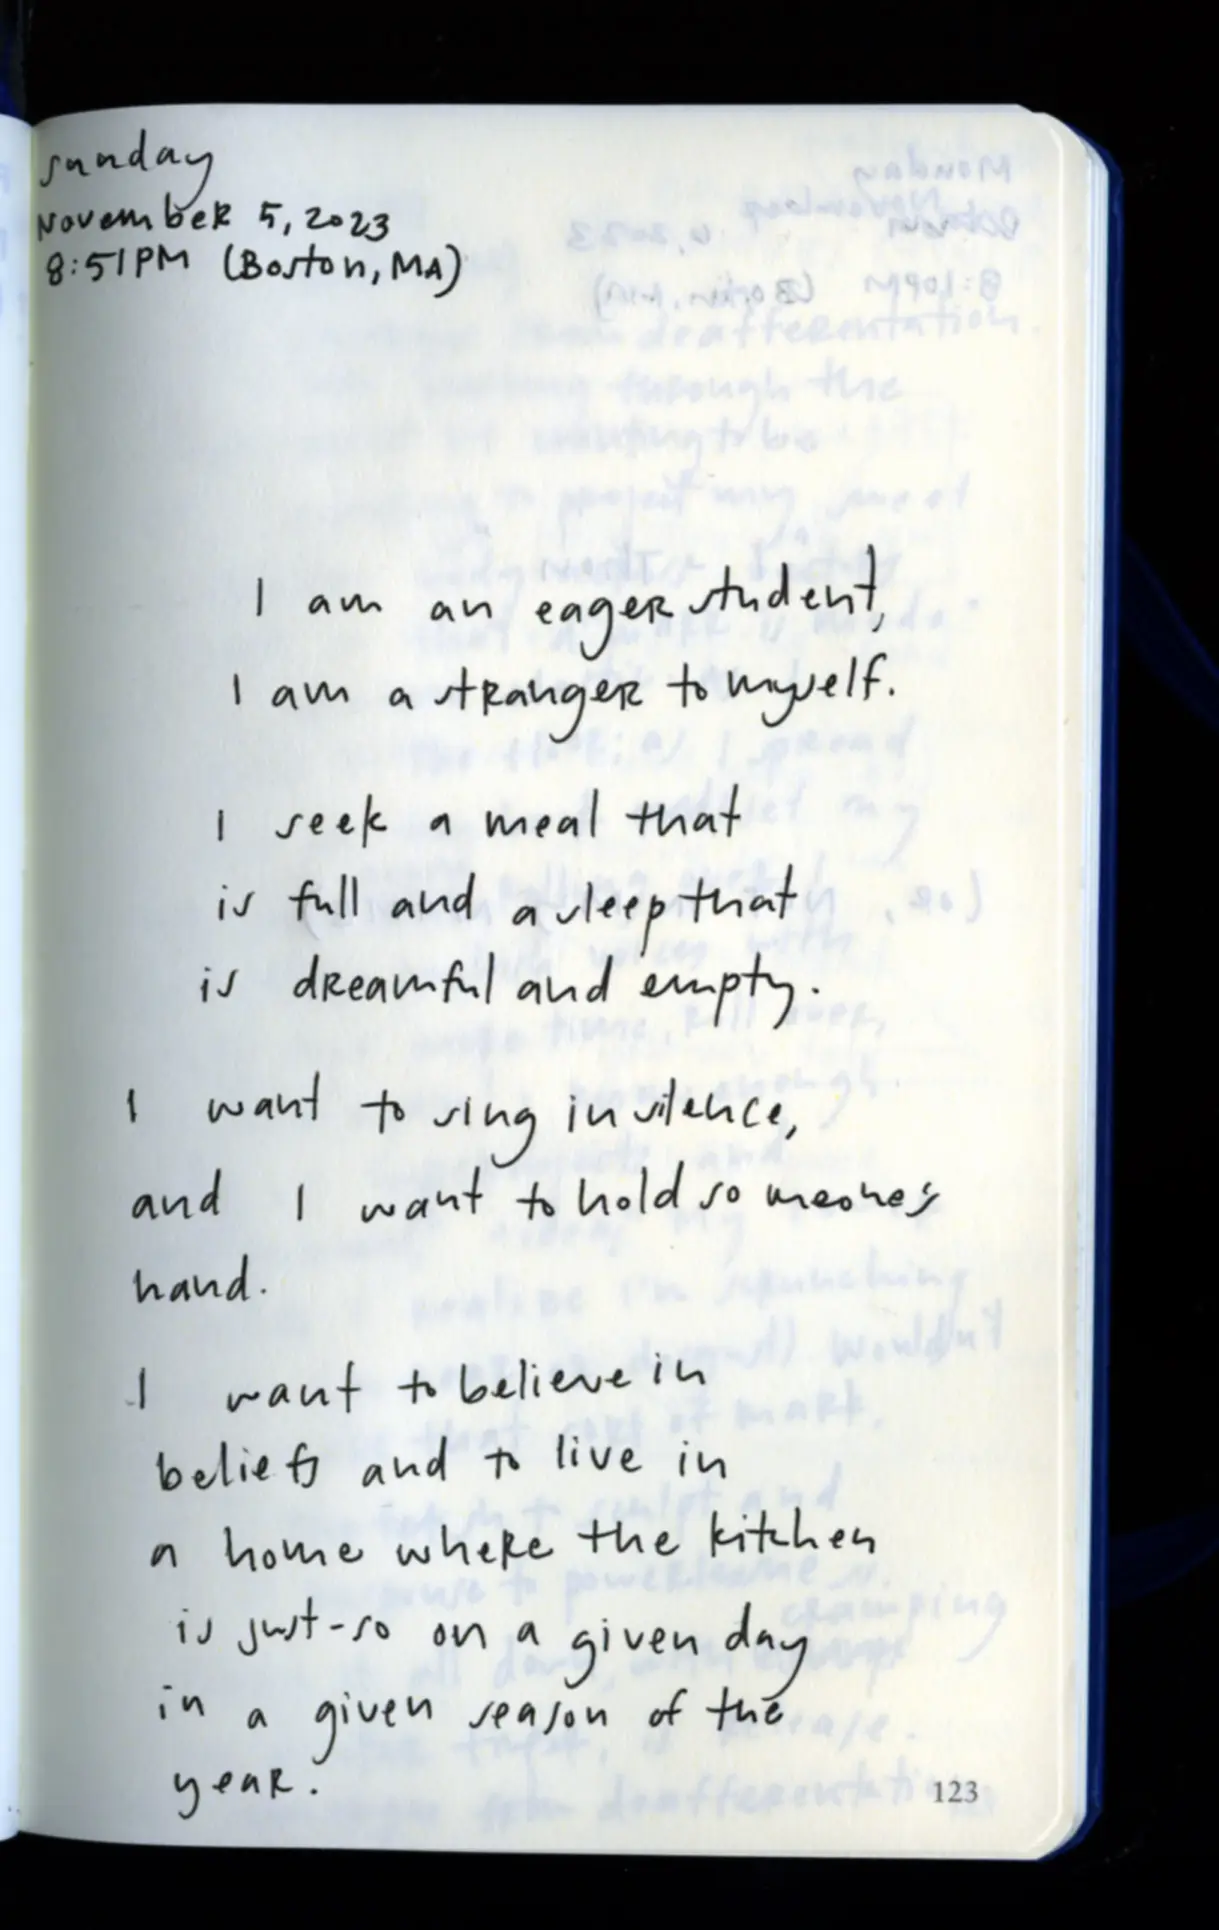 sunday
November 5, 2023
8:51PM (Boston, MA)
I am an eager student,
I am a stranger to myself.
I seek a meal that
is full and a sleep that
is dreamful and empty.
I want to sing in silence,
and I want to hold someone's
hand.
I want to believe in
beliefs and to live in
a home where the kitchen
is just-so on a given day
in a given season of the
year.
123